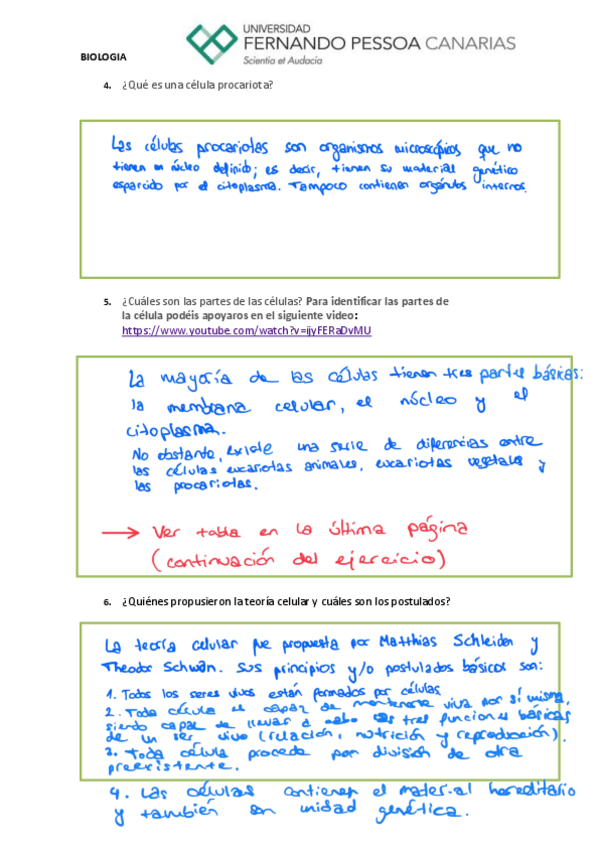 UNIVERSIDAD
FERNANDO PESSOA CANARIAS
Scientia et Audacia
BIOLOGIA
4. ¿Qué es una célula procariota?
Las células procariotas son organismos microscópicos que no
tienen un núcleo definido; es decir, tienen su material genético
esparcido por el citoplasma. Tampoco contienen orgánulos internos.
5. ¿Cuáles son las partes de las células? Para identificar las partes de
la célula podéis apoyaros en el siguiente video:
https://www.youtube.com/watch?v=ijyFERaDvMU
La mayoría de las células tienen tres partes básicas:
la membrana celular, el núcleo y el
citoplasma.
No obstante, existe una serie de diferencias entre
las células eucariotas animales, eucariotas vegetales y
las procariotas.
→ Ver tabla en la última página
(continuación del ejercicio)
6. ¿Quiénes propusieron la teoría celular y cuáles son los postulados?
La teoría celular fue propuesta por Matthias Schleiden y
Theodor Schwan. Sus principios y/o postulados básicos son:
1. Todos los seres vivos están formados por células.
2. Toda célula es capaz de mantenerse viva por sí misma,
siendo capaz de llevar a cabo las tres funciones básicas
de un ser vivo (relación, nutrición y reproducción).
3. Toda célula procede por división de otra
preexistente.
4. Las células contienen el material hereditario
y también son unidad genética.